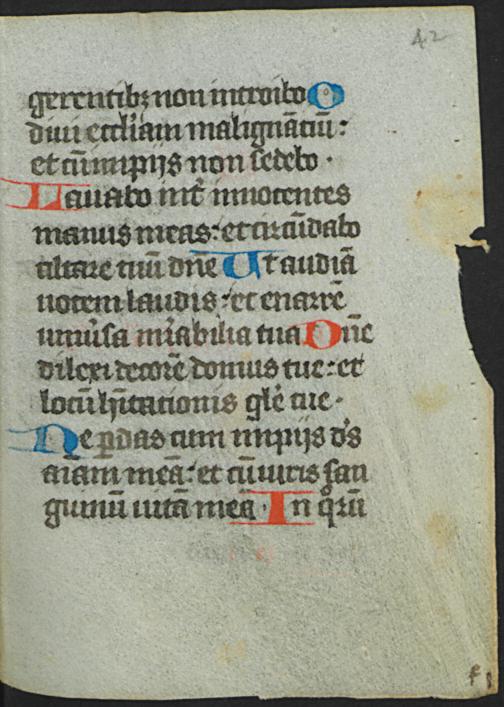 42
gerentibꝫ non introibo O
diui eccl'iam malignātiū :
et cū impijs non sedebo ·
Lauabo int' innocentes
manus meas : et circūdabo
altare tuū dn̄e Ut audiā
uocem laudis : et enarrē
uniu'sa mirabilia tua Dn̄e
dilexi decorē domus tue : et
locū h'itationis gl'e tue ·
Ne ꝑdas cum impijs d's
aīam meā : et cū uiris san
guinū uitā meā · In qͦrū
f